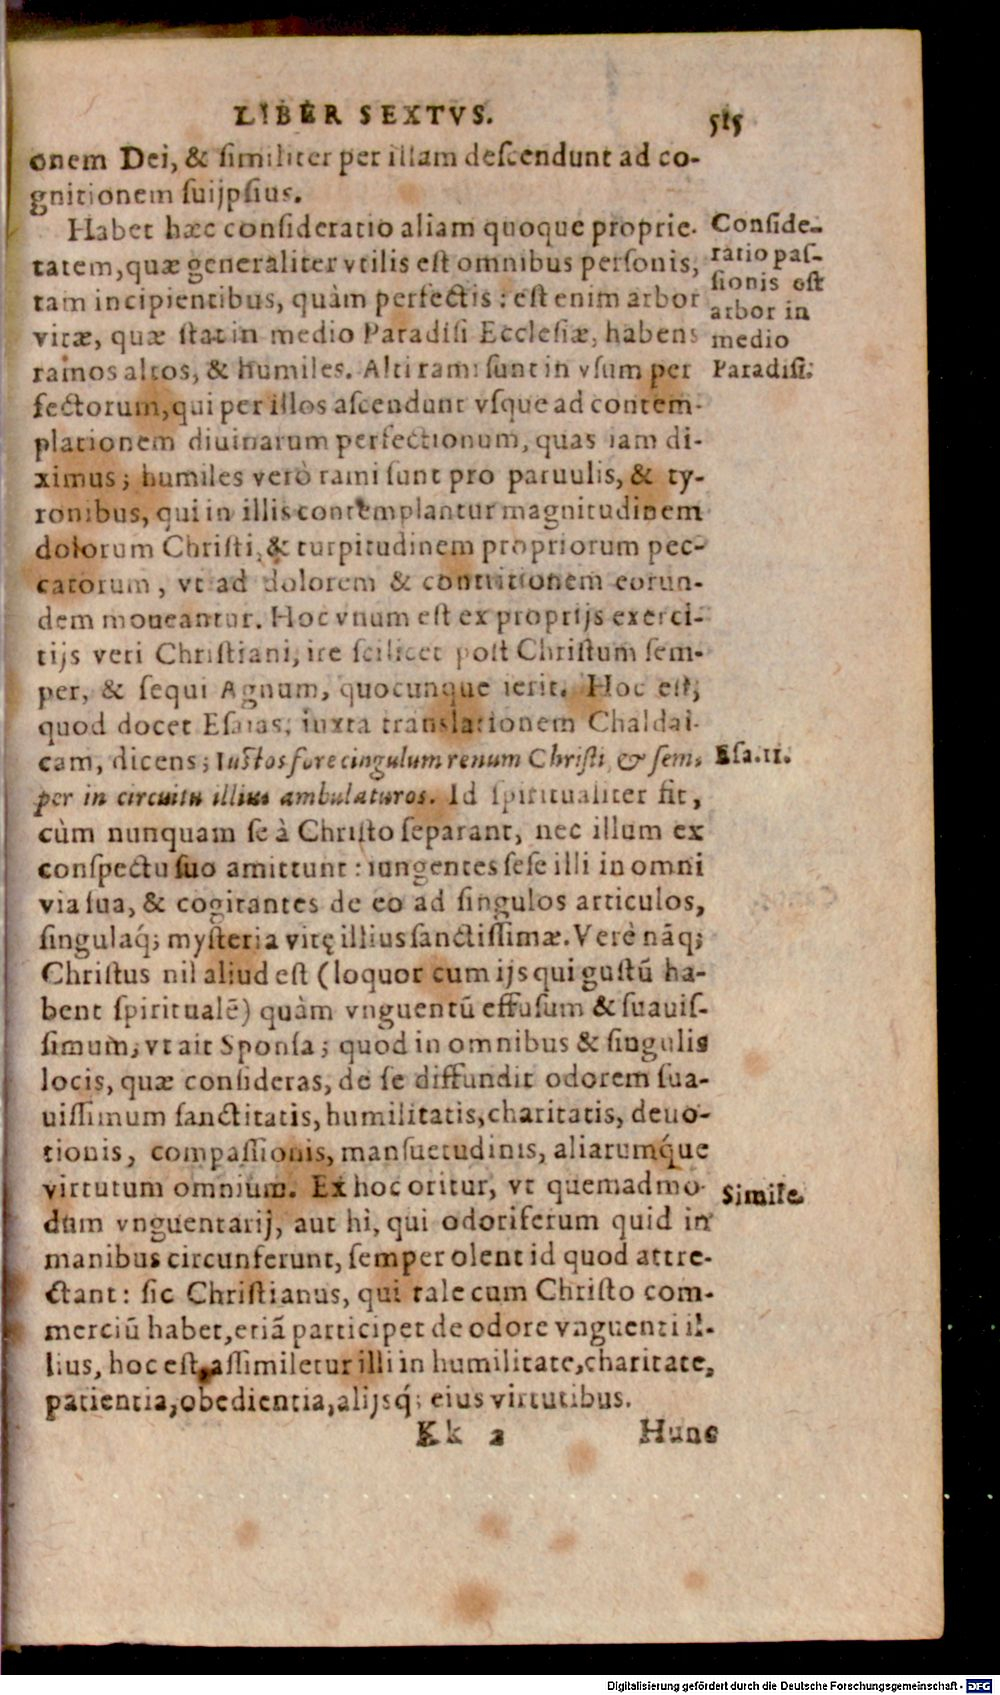 LIBER SEXTVS. 515
onem Dei, & similiter per illam descendunt ad co-
gnitionem suijpsius.
Habet hæc consideratio aliam quoque proprie-
tatem, quæ generaliter vtilis est omnibus personis,
tam incipientibus, quàm perfectis: est enim arbor
vitæ, quæ stat in medio Paradisi Ecclesiæ, habens
ramos altos, & humiles. Alti rami sunt in vsum per
fectorum, qui per illos ascendunt vsque ad contem-
plationem diuinarum perfectionum, quas iam di-
ximus; humiles verò rami sunt pro paruulis, & ty-
ronibus, qui in illis contemplantur magnitudinem
dolorum Christi, & turpitudinem propriorum pec-
catorum, vt ad dolorem & contritionem eorun-
dem moueantur. Hoc vnum est ex proprijs exerci-
tijs veri Christiani, ire scilicet post Christum sem-
per, & sequi Agnum, quocunque ierit. Hoc est,
quod docet Esaias, iuxta translationem Chaldai-
cam, dicens; Iustos fore cingulum renum Christi, & sem-
per in circuitu illius ambulaturos. Id spiritualiter fit,
cùm nunquam se à Christo separant, nec illum ex
conspectu suo amittunt: iungentes sese illi in omni
via sua, & cogitantes de eo ad singulos articulos,
singulaq́; mysteria vitę illius sanctissimæ. Verè nãq;
Christus nil aliud est (loquor cum ijs qui gustũ ha-
bent spiritualẽ) quàm vnguentũ effusum & suauis-
simum, vt ait Sponsa; quod in omnibus & singulis
locis, quæ consideras, de se diffundit odorem sua-
uissimum sanctitatis, humilitatis, charitatis, deuo-
tionis, compassionis, mansuetudinis, aliarumq́ue
virtutum omnium. Ex hoc oritur, vt quemadmo-
dum vnguentarij, aut hi, qui odoriferum quid in
manibus circunferunt, semper olent id quod attre-
ctant: sic Christianus, qui tale cum Christo com-
merciũ habet, etiã participet de odore vnguenti il-
lius, hoc est, assimiletur illi in humilitate, charitate,
patientia, obedientia, alijsq́; eius virtutibus.
Kk 2 Hunc
Conside-
ratio pas-
sionis est
arbor in
medio
Paradisi.
Esa.11.
Simile.
Digitalisierung gefördert durch die Deutsche Forschungsgemeinschaft - DFG